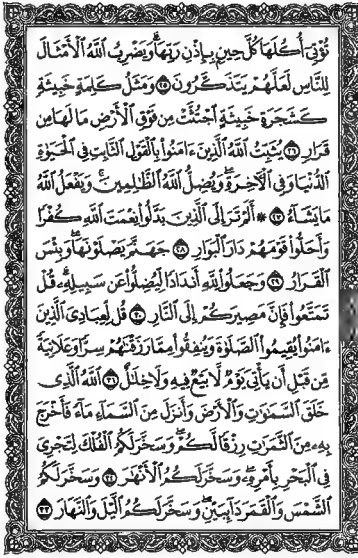 تُؤْتِىٓ أُكُلَهَا كُلَّ حِينٍۭ بِإِذْنِ رَبِّهَا ۗ وَيَضْرِبُ ٱللَّهُ ٱلْأَمْثَالَ
لِلنَّاسِ لَعَلَّهُمْ يَتَذَكَّرُونَ ٢٥ وَمَثَلُ كَلِمَةٍ خَبِيثَةٍ
كَشَجَرَةٍ خَبِيثَةٍ ٱجْتُثَّتْ مِن فَوْقِ ٱلْأَرْضِ مَا لَهَا مِن
قَرَارٍ ٢٦ يُثَبِّتُ ٱللَّهُ ٱلَّذِينَ ءَامَنُوا۟ بِٱلْقَوْلِ ٱلثَّابِتِ فِى ٱلْحَيَوٰةِ
ٱلدُّنْيَا وَفِى ٱلْءَاخِرَةِ ۖ وَيُضِلُّ ٱللَّهُ ٱلظَّٰلِمِينَ ۚ وَيَفْعَلُ ٱللَّهُ
مَا يَشَآءُ ٢٧ ۞ أَلَمْ تَرَ إِلَى ٱلَّذِينَ بَدَّلُوا۟ نِعْمَتَ ٱللَّهِ كُفْرًا
وَأَحَلُّوا۟ قَوْمَهُمْ دَارَ ٱلْبَوَارِ ٢٨ جَهَنَّمَ يَصْلَوْنَهَا ۖ وَبِئْسَ
ٱلْقَرَارُ ٢٩ وَجَعَلُوا۟ لِلَّهِ أَندَادًا لِّيُضِلُّوا۟ عَن سَبِيلِهِۦ ۗ قُلْ
تَمَتَّعُوا۟ فَإِنَّ مَصِيرَكُمْ إِلَى ٱلنَّارِ ٣٠ قُل لِّعِبَادِىَ ٱلَّذِينَ
ءَامَنُوا۟ يُقِيمُوا۟ ٱلصَّلَوٰةَ وَيُنفِقُوا۟ مِمَّا رَزَقْنَٰهُمْ سِرًّا وَعَلَانِيَةً
مِّن قَبْلِ أَن يَأْتِىَ يَوْمٌ لَّا بَيْعٌ فِيهِ وَلَا خِلَٰلٌ ٣١ ٱللَّهُ ٱلَّذِى
خَلَقَ ٱلسَّمَٰوَٰتِ وَٱلْأَرْضَ وَأَنزَلَ مِنَ ٱلسَّمَآءِ مَآءً فَأَخْرَجَ
بِهِۦ مِنَ ٱلثَّمَرَٰتِ رِزْقًا لَّكُمْ ۖ وَسَخَّرَ لَكُمُ ٱلْفُلْكَ لِتَجْرِىَ
فِى ٱلْبَحْرِ بِأَمْرِهِۦ ۖ وَسَخَّرَ لَكُمُ ٱلْأَنْهَٰرَ ٣٢ وَسَخَّرَ لَكُمُ
ٱلشَّمْسَ وَٱلْقَمَرَ دَآئِبَيْنِ ۖ وَسَخَّرَ لَكُمُ ٱلَّيْلَ وَٱلنَّهَارَ ٣٣